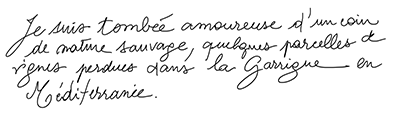 Je suis tombée amoureuse d'un coin
de nature sauvage, quelques parcelles de
vignes perdues dans la Garrigue en
Méditerranée.